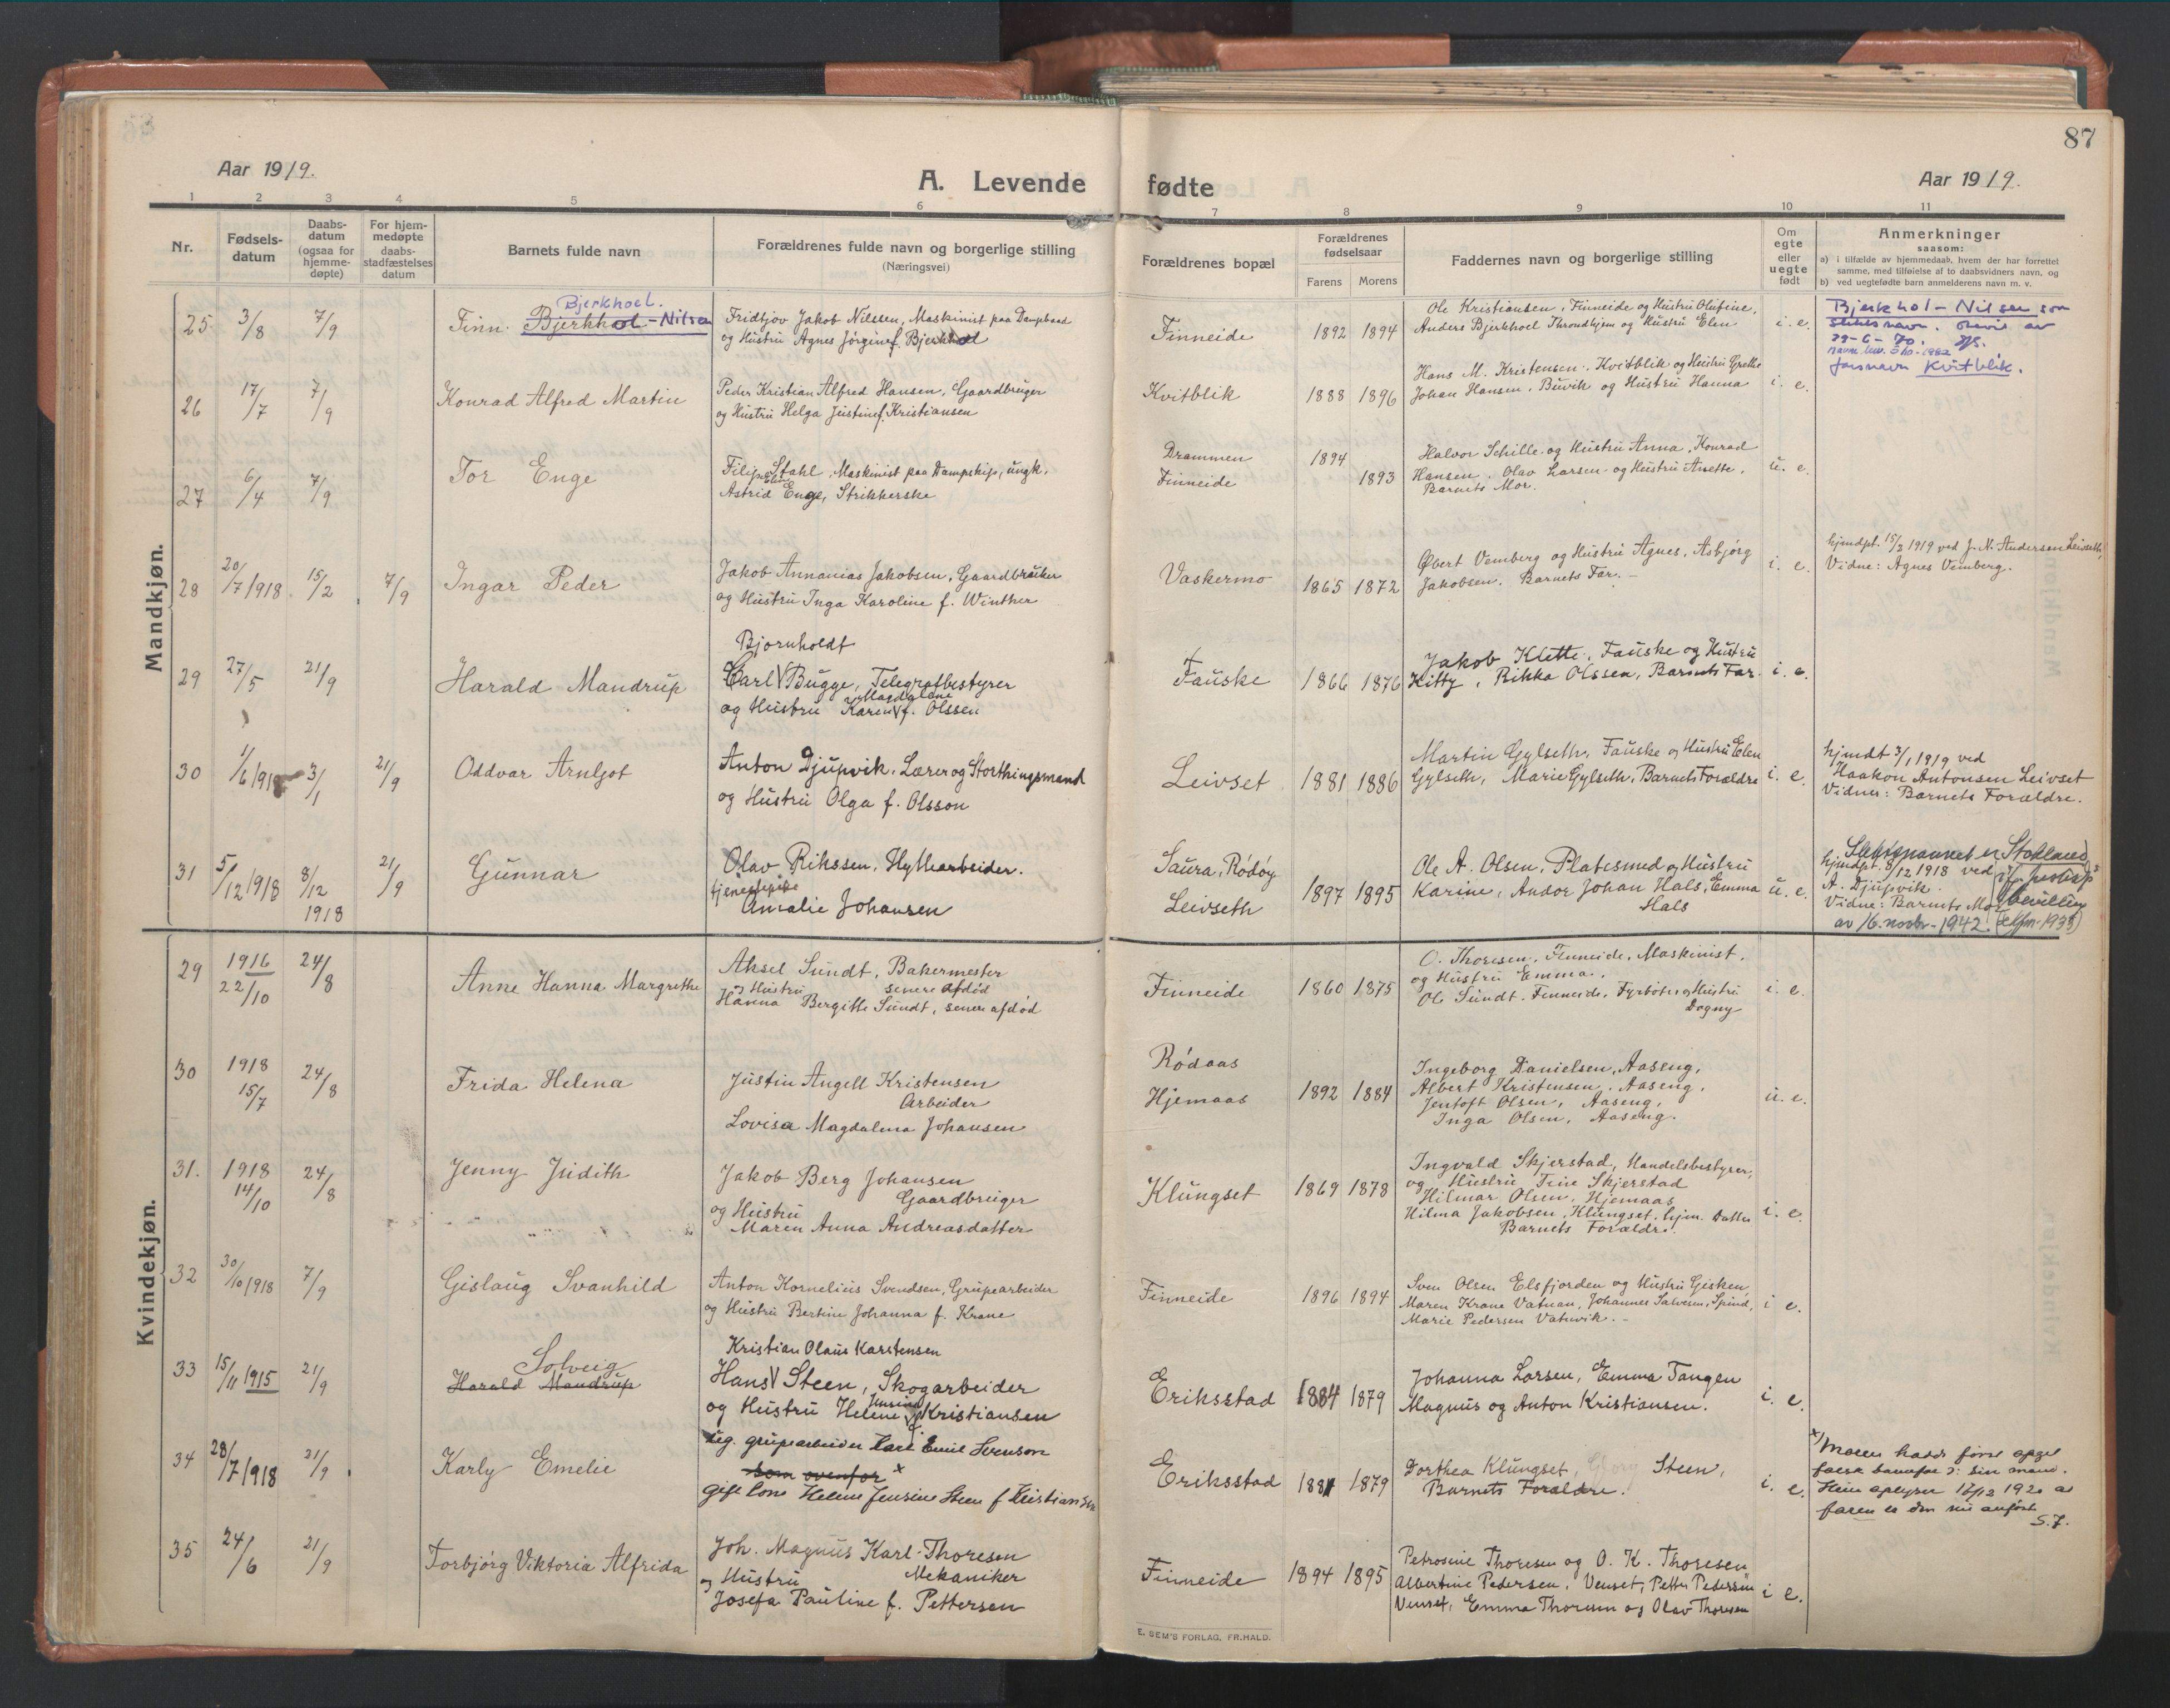 87
Aar 1919.
A. Levende fødte
Aar 1919.
1 2 3 4 5 6 7 8 9 10 11
Nr.
Fødsels-
datum
Daabs-
datum
(ogsaa for
hjemme-
døpte)
For hjem-
medøpte
daabs-
stadfæstelses
datum
Barnets fulde navn
Forældrenes fulde navn og borgerlige stilling
(Næringsvei)
Forældrenes bopæl
Forældrenes
fødselsaar
Farens Morens
Faddernes navn og borgerlige stilling
Om
egte
eller
uegte
født
Anmerkninger
saasom:
a) i tilfælde av hjemmedaab, hvem der har forrettet
samme, med tilføielse af to daabsvidners navn, og
b) ved uegtefødte barn anmelderens navn m. v.
Mandkjøn.
25 3/8 7/9
Bjerkhoel.
Finn. Bjerkhol-Nilsen
Fridtjov Jakob Nilssen, Maskinist paa Dampbaad
og Hustru Agnes Jørgine f. Bjerkhol
Finneide 1892 1894
Ole Kristiansen, Finneide og Hustru Olufine,
Anders Bjerkhoel Throndhjem og Hustru Elen
i. e.
Bjerkhol-Nilsen som
slektsnavn.
29-6-70.
farsnavn Kvitblik.
26 17/7 7/9
Konrad Alfred Martin
Peder Kristian Alfred Hansen, Gaardbruger
og Hustru Helga Justine f. Kristiansen
Kvitblik 1888 1896
Hans M. Kristensen. Kvitblik og Hustru Grethe
Johan Hansen, Buvik og Hustru Hanna
i. e.
27 6/4 7/9
Tor Enge
Filip Stahl, Maskinist paa Dampskip, ungk.
Astrid Enge, Strikkerske
Drammen 1894
Finneide 1893
Halvor Schille og Hustru Anna, Konrad
Hansen, Olav Larsen og Hustru Anette,
Barnets Mor.
u. e.
28 20/7 1918 15/2 7/9
Ingar Peder
Jakob Annanias Jakobsen, Gaardbruker
og Hustru Inga Karoline f. Winther
Vaskermo 1865 1872
Øbert Vemberg og Hustru Agnes, Asbjørg
Jakobsen. Barnets Far.
i. e.
hjmdpt. 15/2 1919 ved J. N. Andersen Leivseth,
Vidne: Agnes Vemberg.
29 27/5 21/9
Harald Mandrup
Bjornholdt
Carl Bugge, Telegrafbestyrer
Magdalene
og Hustru Karen f. Olssen
Fauske 1866 1876
Jakob Klette, Fauske og Hustru
Kitty, Rikka Olssen, Barnets Far.
i. e.
30 1/6 1918 3/1 21/9
Oddvar Arnljot
Anton Djupvik, Lærer og Storthingsmand
og Hustru Olga f. Olsson
Leivset 1881 1886
Martin Gylseth, Fauske og Hustru Elen
Gylseth, Marie Gylseth, Barnets Forældre
i. e.
hjmdt 3/1 1919 ved
Haakon Antonsen Leivset
Vidner: Barnets Forældre.
31 5/12 1918 8/12 1918 21/9
Gunnar
Olav Rikssen, Hyttearbeider.
tjenestepike
Amalie Johansen
Saura, Rödöy
Leivseth
1897 1895
Ole A. Olsen, Platesmed og Hustru
Karine, Andor Johan Hals, Emma
Hals
u. e.
Slegtsnavnet er Stokland
hjmdpt. 8/12 1918 ved
A. Djupvik.
Vidne: Barnets Mor bevilling
av 16. novbr. 1942.
Kvindekjøn.
29 1916 22/10 24/8
Anne Hanna Margrethe
Aksel Sundt, Bakermester
og Hustru senere afdød
Hanna Bergitte Sundt, senere afdød
Finneide 1860 1875
O. Thoresen, Finneide, Maskinist,
og Hustru Emma.
Ole Sundt. Finneide, Fyrbøter og Hustru
Dagny
i. e.
30 1918 15/7 24/8
Frida Helena
Justin Angell Kristensen
Arbeider
Lovisa Magdalena Johansen
Rödaas
Hjemaas 1892 1884
Ingeborg Danielsen, Aaseng,
Albert Kristensen, Aaseng,
Jentoft Olsen, Aaseng,
Inga Olsen, Aaseng.
u. e.
31. 1918 14/10 24/8
Jenny Judith
Jakob Berg Johansen
Gaardbruger
og Hustru
Maren Anna Andreasdatter
Klungset 1869 1878
Ingvald Skjerstad, Handelsbestyrer,
og Hustru Trine Skjerstad
Hilmar Olsen, Hjemaas
Hilma Jakobsen, Klungset, hjm. Datter
Barnets Forældre.
i. e.
32 30/10 1918 7/9
Gislaug Svanhild
Anton Kornelius Svendsen, Grubearbeider
og Hustru Bertine Johanna f. Krane
Finneide 1896 1894
Sven Olsen Elsfjorden og Hustru Gisken,
Maren Krane Vatnan, Johannes Salvesen, Spind,
Marie Pedersen Vatnvik.
i e.
33 15/11 1915 21/9
Solveig
Harald Mandrup
Kristian Olaus Karstensen
Hans Steen, Skogarbeider
Jensine
og Hustru Helene f. Kristiansen
Eriksstad 1884 1879
Johanna Larsen, Emma Tangen
Magnus og Anton Kristiansen.
i. e.
34 28/7 1918 21/9
Karly Emelie
ug. grubearbeider Karl Emil Svenson
som ovenfor x
gift kone Helene Jensine Steen f Kristiansen
Eriksstad 1881 1879
Dorthea Klungset, Steen,
Barnets Forældre.
i. e.
x) Moren hadde først opgit
falsk barnefar: sin mand.
Hun oplyser 17/12 1920 at
faren er den nu anførte
S. F.
35 24/6 21/9
Torbjørg Viktoria Alfrida
Joh. Magnus Karl Thoresen
og Hustru Mekaniker
Josefa Pauline f. Pettersen
Finneide 1894 1895
Petrosine Thoresen og O. K. Thoresen
Albertine Pedersen, Venset, Petter Pedersen
Venset, Emma Thoresen og Olav Thoresen
i e.
E. SEM'S FORLAG, FR.HALD.